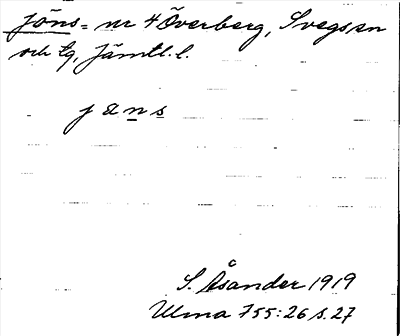 Jöns = nr 4 Överberg, Svegs sn
och tg, Jämtl. l.
jɶns
S. Åsander 1919
Ulma 755:26 s. 27